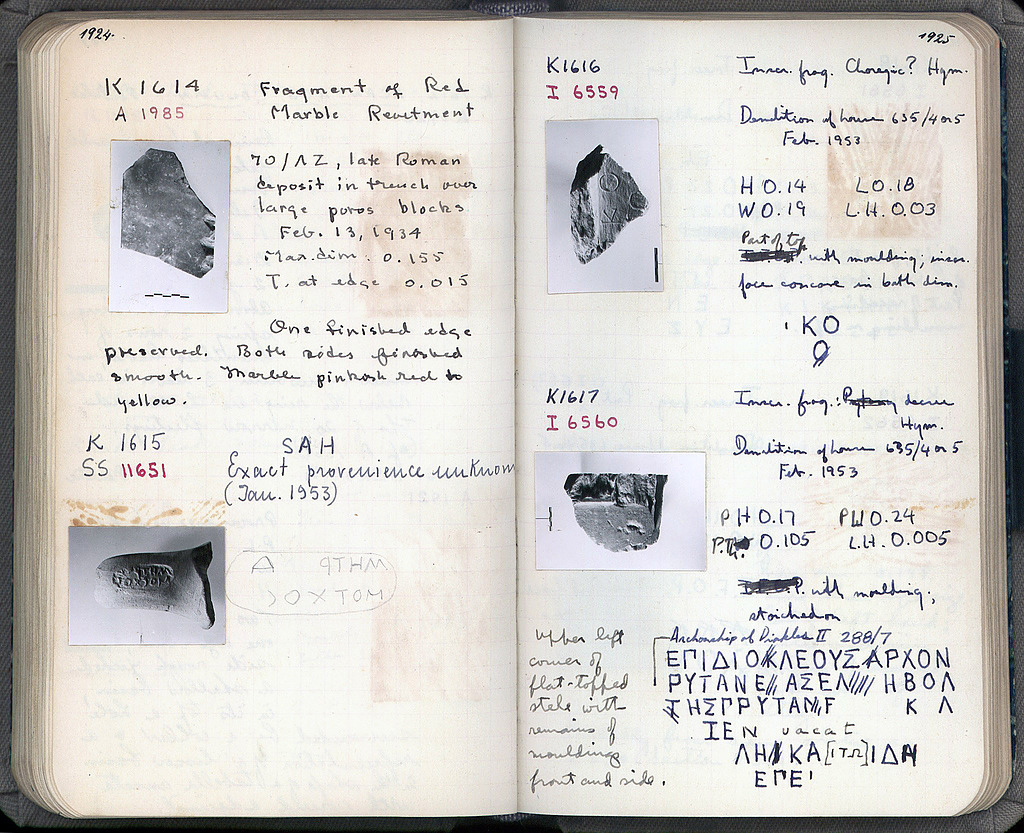 1924.
K 1614
A 1985
Fragment of Red
Marble Revetment
70/ΛΖ, late Roman
deposit in trench over
large poros blocks
Feb. 13, 1934
Max. dim. 0.155
T. at edge 0.015
One finished edge
preserved. Both sides finished
smooth. Marble pinkish red to
yellow.
K 1615
SS 11651
SAH
Exact provenience unknown
(Jan. 1953)
1925
K1616
I 6559
Inscr. frag. Choregic? Hym.
Demolition of house 635/4 or 5
Feb. 1953
H 0.14 L 0.18
W 0.19 L.H. 0.03
Part of top
with moulding; inscr.
face concave in both dim.
ΚΟ
K1617
I 6560
Inscr. frag.: decree
Hym.
Demolition of house 635/4 or 5
Feb. 1953
P H 0.17 P W 0.24
P.Th. 0.105 L.H. 0.005
P. with moulding;
stoichedon
Upper left
corner of
flat-topped
stele with
remains of
mouldings
front and side.
Archonship of Diokles II 288/7
ΕΠΙΔΙΟΚΛΕΟΥΣΑΡΧΟΝ
ΡΥΤΑΝΕ// ΑΣΕΛ//// ΗΒΟΛ
ΤΗΣΠΡΥΤΑΝ F Κ Λ
ΙΕΝ vacat
ΛΗ/ΚΑ[ΙΤΩ]ΙΔΗ
ΕΠΕΙ